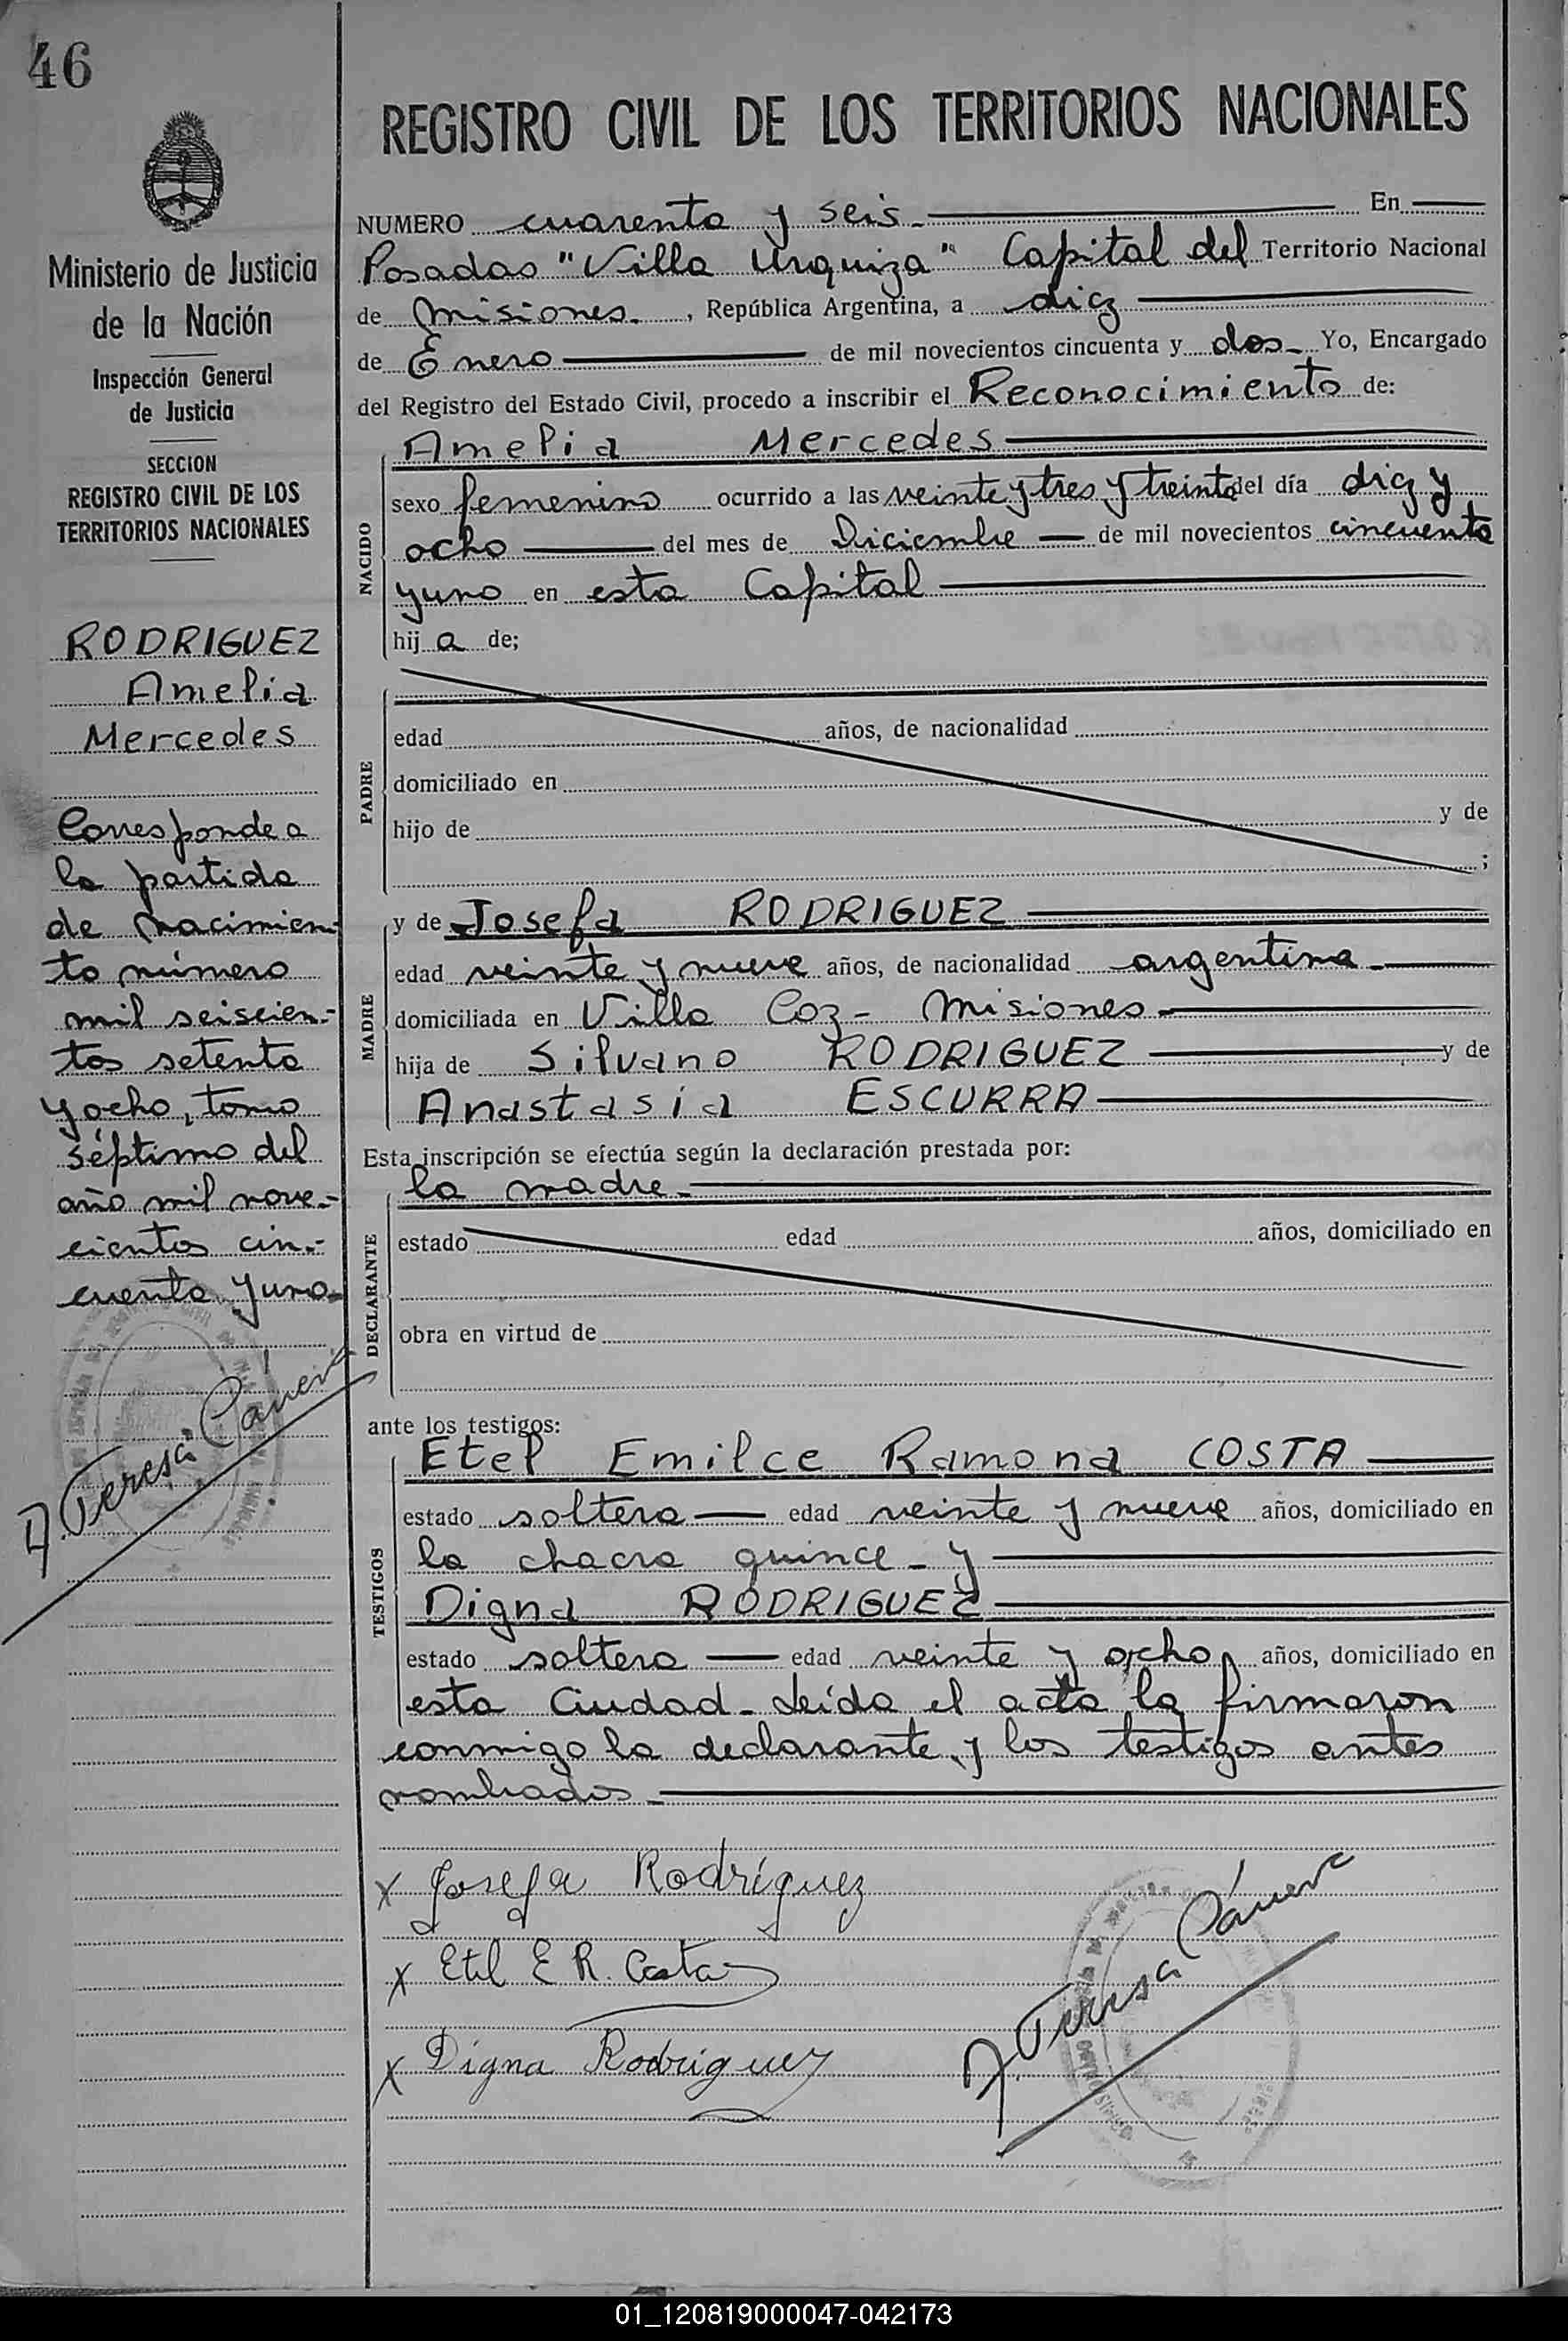 46
REGISTRO CIVIL DE LOS TERRITORIOS NACIONALES
Ministerio de Justicia
de la Nación
Inspección General
de Justicia
SECCION
REGISTRO CIVIL DE LOS
TERRITORIOS NACIONALES
RODRIGUEZ
Amelia
Mercedes
Corresponde a
la partida
de nacimien-
to número
mil seiscien-
tos setenta
y ocho, tomo
séptimo del
año mil nove-
cientos cin-
cuenta y uno
A. Teresa
NUMERO cuarenta y seis En
Posadas "Villa Urquiza" Capital del Territorio Nacional
de Misiones, República Argentina, a diez
de Enero de mil novecientos cincuenta y dos Yo, Encargado
del Registro del Estado Civil, procedo a inscribir el Reconocimiento de:
NACIDO
Amelia Mercedes
sexo femenino ocurrido a las veinte y tres y treinta del día diez y
ocho del mes de Diciembre de mil novecientos cincuenta
y uno en esta Capital
hij a de;
PADRE
edad años, de nacionalidad
domiciliado en
hijo de y de
;
MADRE
y de Josefa RODRIGUEZ
edad veinte y nueve años, de nacionalidad argentina
domiciliada en Villa Coz - Misiones
hija de Silvano RODRIGUEZ y de
Anastasia ESCURRA
Esta inscripción se efectúa según la declaración prestada por:
DECLARANTE
la madre
estado edad años, domiciliado en
obra en virtud de
ante los testigos:
TESTIGOS
Etel Emilce Ramona COSTA
estado soltera edad veinte y nueve años, domiciliado en
la chacra quince - y
Digna RODRIGUEZ
estado soltera edad veinte y ocho años, domiciliado en
esta Ciudad - Leída el acta la firmaron
conmigo la declarante y los testigos antes
nombrados
x Josefa Rodríguez
x Etel E R. Costa
x Digna Rodriguez
A. Teresa
01_120819000047-042173